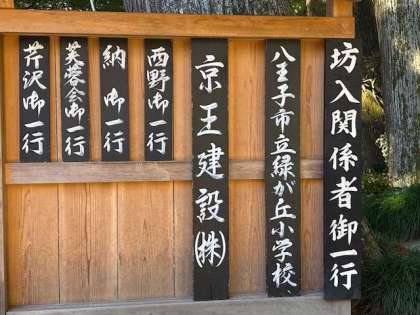 坊入関係者御一行
八王子市立緑が丘小学校
京王建設(株)
西野御一行
納御一行
芙蓉会御一行
芹沢御一行